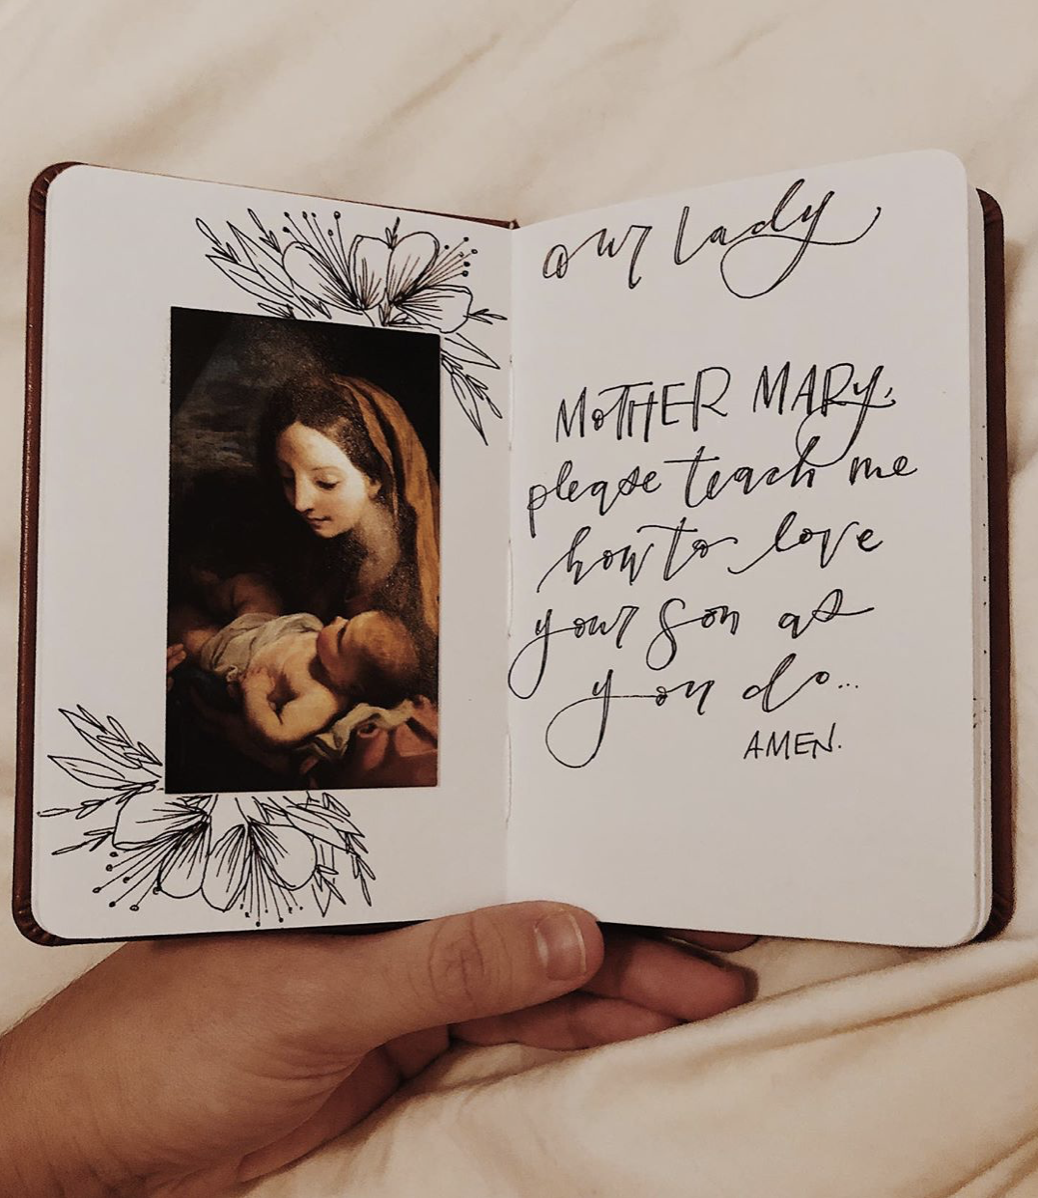 our lady
MOTHER MARY,
please teach me
how to love
your son as
you do...
AMEN.